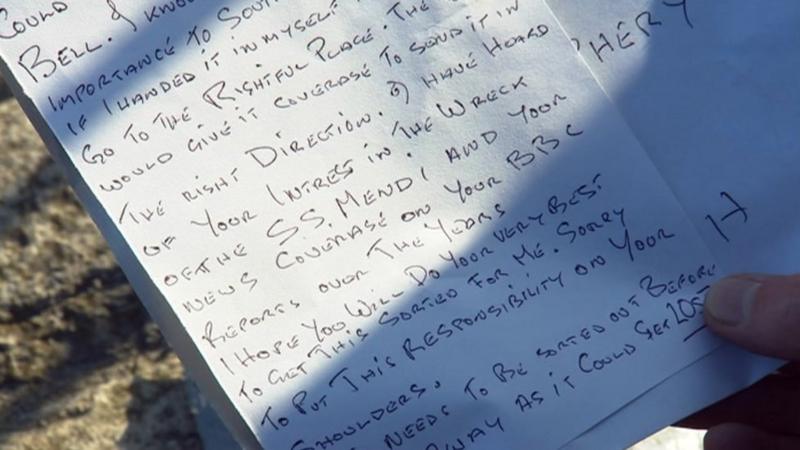 COULD
BELL. & KNOW
IMPORTANCE TO SOUT
IF I HANDED IT IN MYSELF
GO TO THE RIGHTFUL PLACE. THE
WOULD GIVE IT COVERASE TO SEND IT IN
THE RIGHT DIRECTION. HAVE HEARD
OF YOUR INTREST IN THE WRECK
OF THE SS. MENDI AND YOUR
NEWS COVERASE ON YOUR BBC
REPORTS OVER THE YEARS
I HOPE YOU WILL DO YOUR VERY BEST
TO GET THIS SORTED FOR ME. SORRY
TO PUT THIS RESPONSIBILITY ON YOUR
SHOULDERS.
NEEDS TO BE SORTED OUT BEFORE
AWAY AS IT COULD GET LOST
HERY